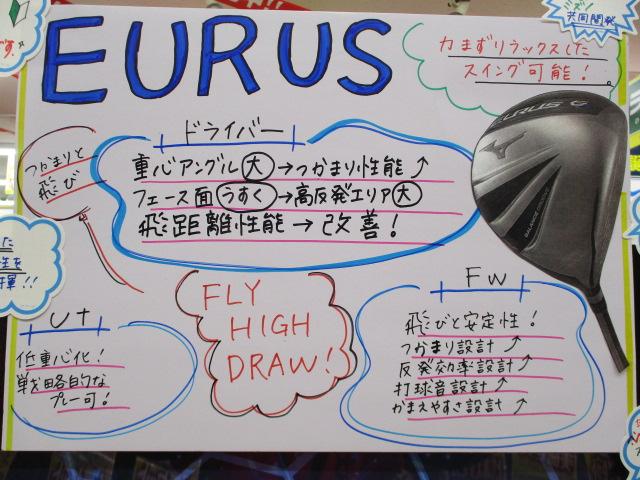 EURUS
共同開発
力まずリラックスした
スイング可能!
です。
つかまりと
飛び
ドライバー
重心アングル大→つかまり性能↑
フェース面うすく→高反発エリア大
飛距離性能→改善!
EURUS G
FLY
HIGH
DRAW!
UT
低重心化!
戦略的な
プレー可!
FW
飛びと安定性!
つかまり設計↑
反発効率設計↑
打球音設計↑
かまえやすさ設計↑
した
性を
揮!!